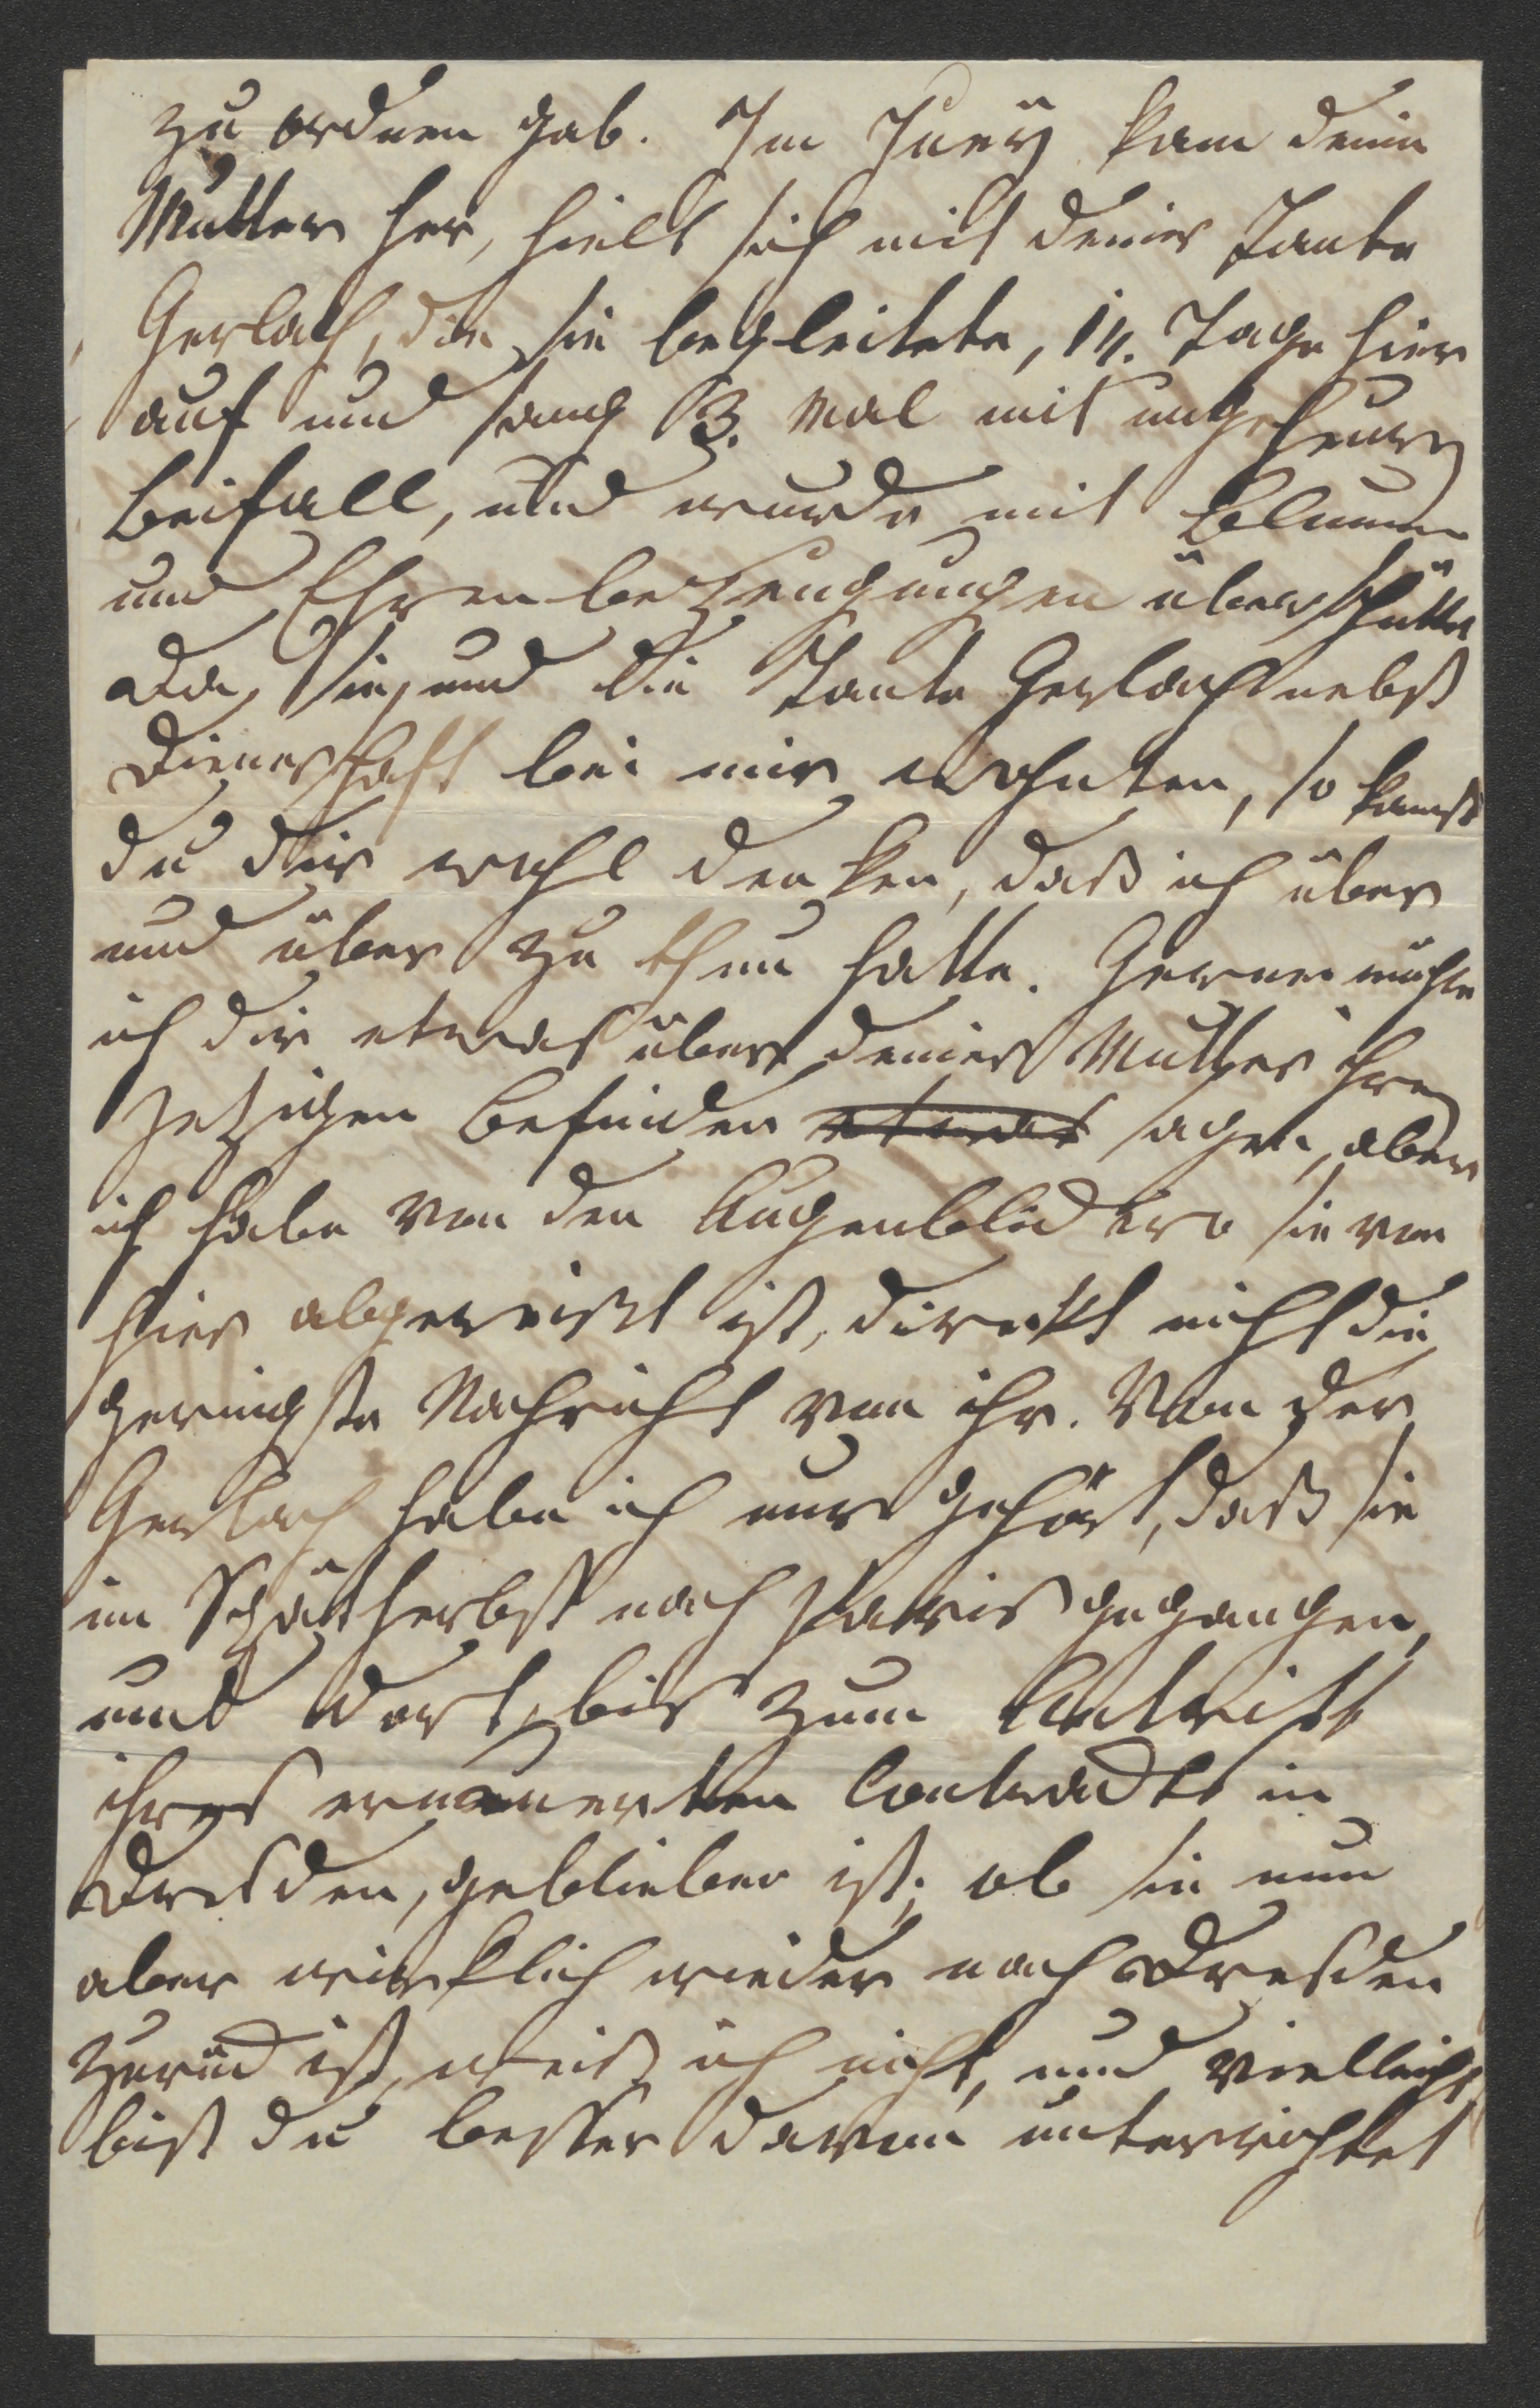 zu ordnen gab. Im Juny kam deine
Mutter her, hielt sich mit deiner Tante
Gerlach, die sie begleitete, 14. Tage hier
auf und sang 3. Mal mit ungeheurem
Beifall, und wurde mit Blumen
und Ehrenbezeugungen überschüttet
Da, Sie, und die Tante Gerlach nebst
Dienerschaft bei mir wohnten, so kannst
du dir wohl denken, daß ich über
und über zu thun hatte. Gerne möchte
ich dir etwas über deiner Mutter ihre
jetzigen Befinden etwas sagen, aber
ich habe von den Augenblick wo sie von
hier abgereist ist, direkt nicht die
geringste Nachricht von ihr. Von der
Gerlach habe ich nur gehört, daß sie
im Spätherbst nach Paris gegangen,
und dort bis zum Antritt
ihres erneuerten Contrackts in
Dresden, geblieben ist; ob sie nun
aber wirklich wieder nach Dresden
zurück ist, weis ich nicht, und vielleicht
bist du besser davon unterrichtet